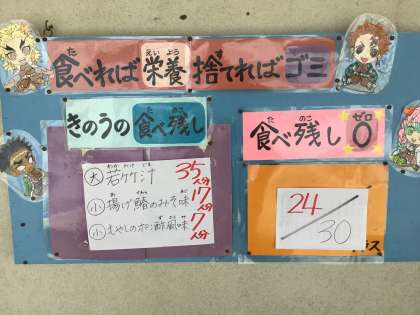 食べれば栄養 捨てればゴミ
きのうの食べ残し
大 若竹汁 35人分
小 揚げ鰆のみそ味 17人分
小 もやしのポン酢風味 7人分
食べ残し ゼロ 0
24/30
ラス